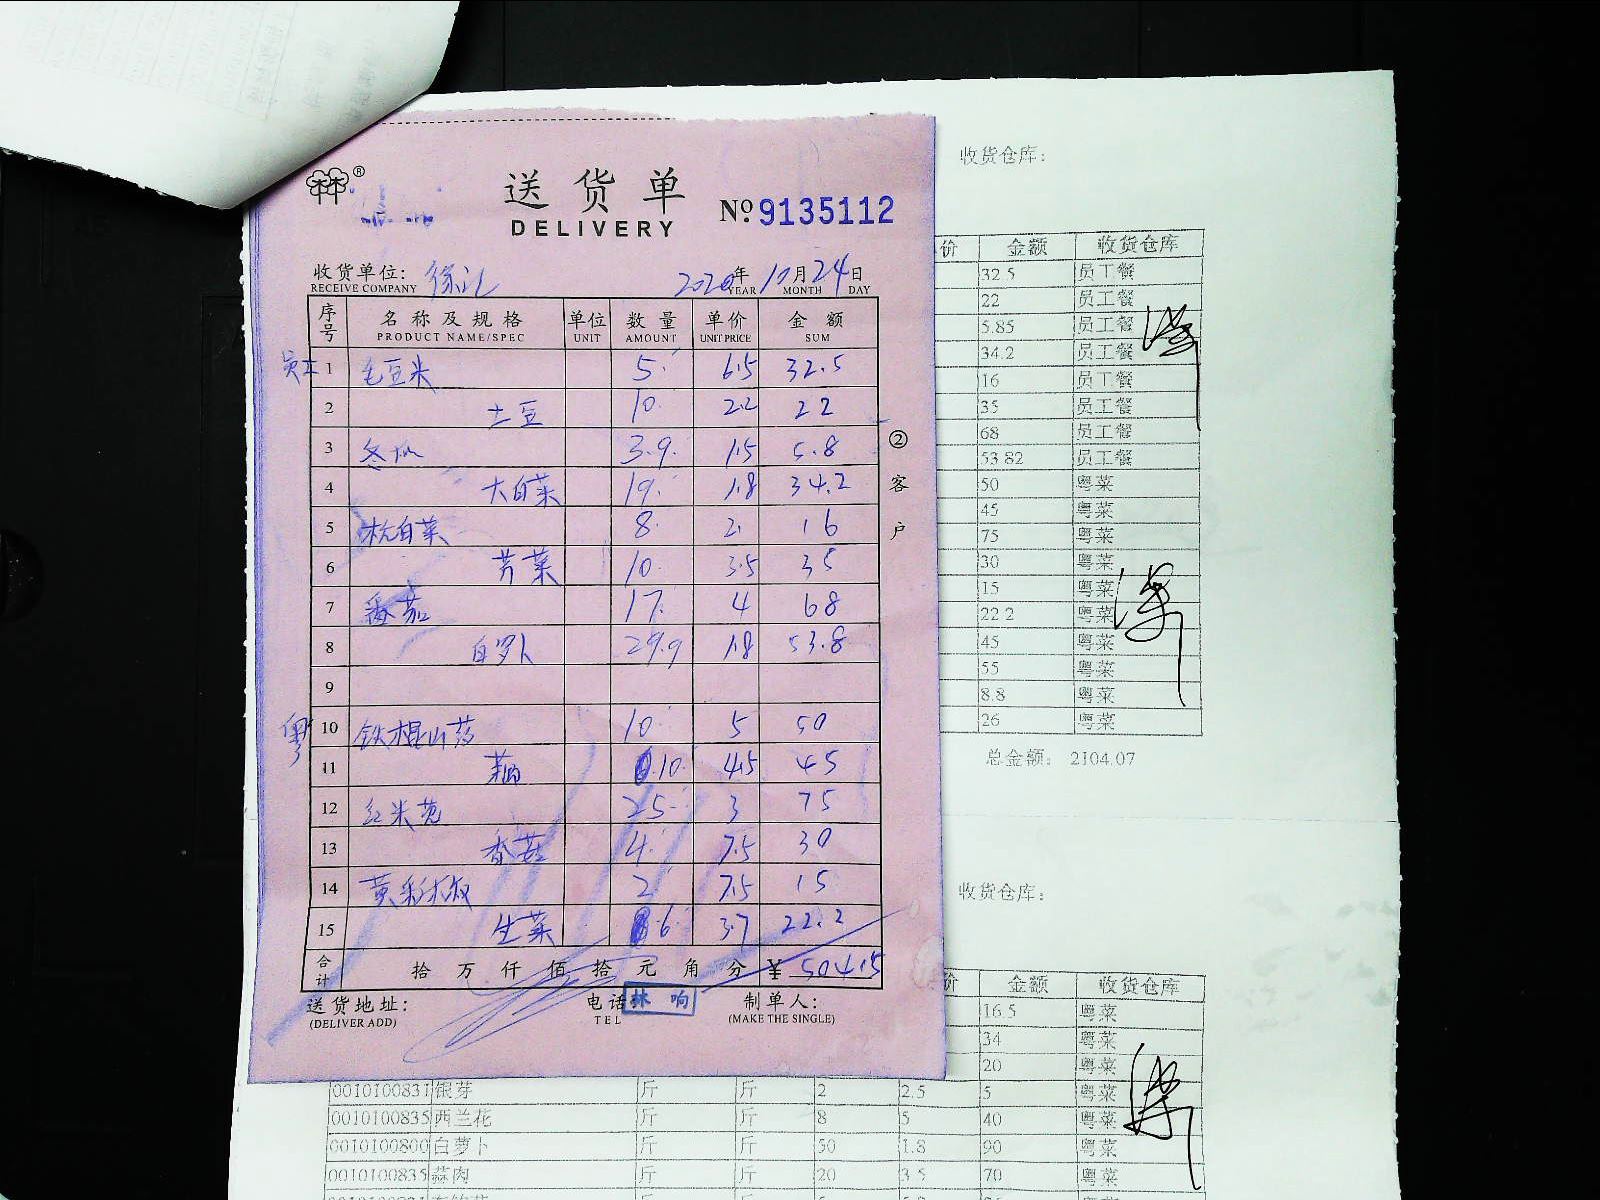 收货仓库:
送货单
DELIVERY
No 9135112
收货单位:
RECEIVE COMPANY
2020年 YEAR 月 MONTH 24日 DAY
序号 名称及规格 PRODUCT NAME/SPEC 单位 UNIT 数量 AMOUNT 单价 UNIT PRICE 金额 SUM
员工 1 毛豆米 5. 6.5 32.5
2 土豆 10. 2.2 22
3 冬瓜 3.9. 1.5 5.8
4 大白菜 19. 1.8 34.2
5 杭白菜 8. 2. 16
6 芳菜 10. 3.5 35
7 番茄 17. 4 68
8 白罗卜 29.9 1.8 53.8
9
粤 10 铁棍山药 10 5 50
11 10 4.5 45
12 红米苋 25 3 75
13 香菇 4. 7.5 30
14 黄彩椒 2 7.5 15
15 生菜 6 3.7 22.2
合计 拾万仟佰拾元角分 ¥ 504.15
送货地址:
(DELIVER ADD)
电话
TEL
林响
制单人:
(MAKE THE SINGLE)
② 客户
价 金额 收货仓库
32.5 员工餐
22 员工餐
5.85 员工餐
34.2 员工餐
16 员工餐
35 员工餐
68 员工餐
53.82 员工餐
50 粤菜
45 粤菜
75 粤菜
30 粤菜
15 粤菜
22.2 粤菜
45 粤菜
55 粤菜
8.8 粤菜
26 粤菜
总金额: 2104.07
收货仓库:
价 金额 收货仓库
16.5 粤菜
34 粤菜
20 粤菜
0010100831 银芽 斤 斤 2 2.5 5 粤菜
0010100835 西兰花 斤 斤 8 5 40 粤菜
0010100800 白萝卜 斤 斤 50 1.8 90 粤菜
0010100835 蒜肉 斤 斤 20 3.5 70 粤菜